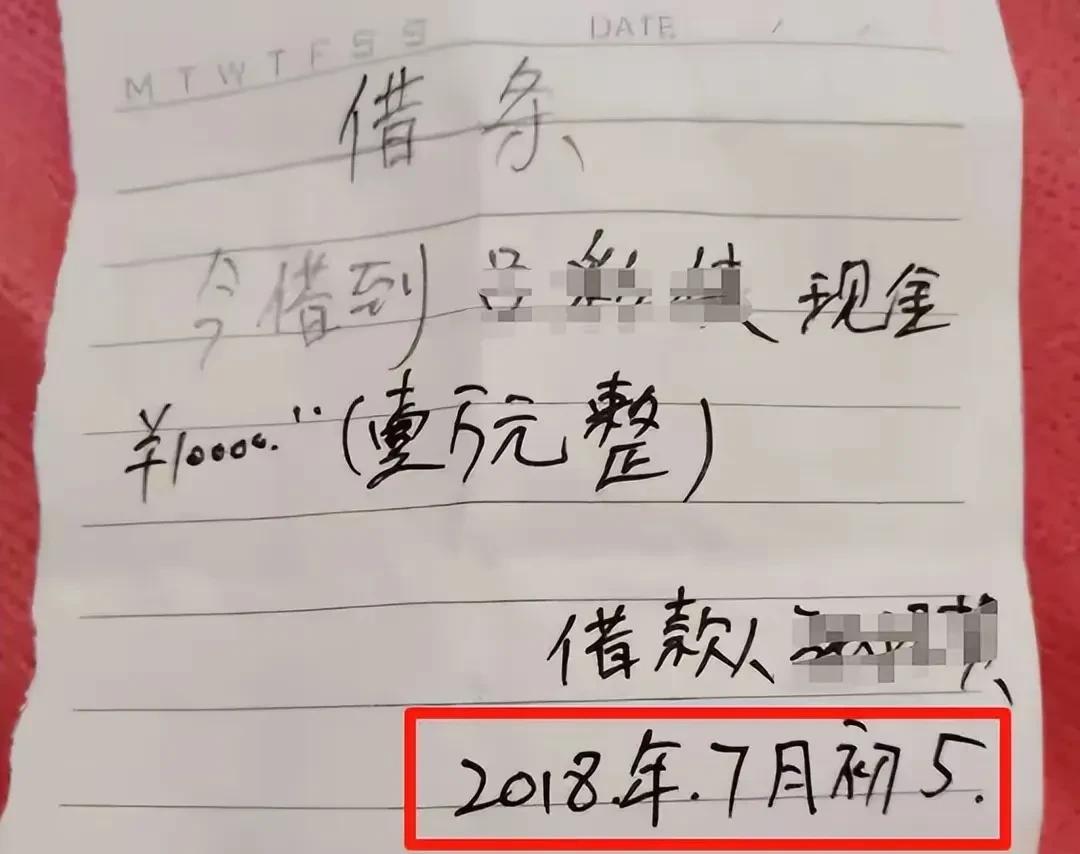 M T W T F S S DATE / /
借条
今借到 现金
￥10000.''(壹万元整)
借款人
2018.年.7月初5.